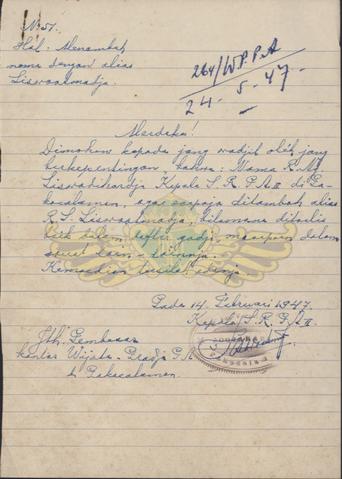 No: 51.
Hal: Menambah
nama dengan alias
Siswaatmadja.
264/W.P.P.A
24-5-47-
Merdeka!
Dimohon kepada jang wadjib oleh jang
berkepentingan, bahwa: Nama R. M.
Siswadihardja Kepala S. R. P. A. II di Pa-
kualaman, agar supaja ditambah alias
R. S. Siswaatmadja, bilamana ditoelis
baik dalam daftar gadji, maoepoen dalam
soerat lain-lainnja.
Kemoedian
Pada 14 Februari 1947.
Kepala S. R. P. A. II
Jth. Pembesar
kantor Wijata-Pradja P. A
di Pakualaman.